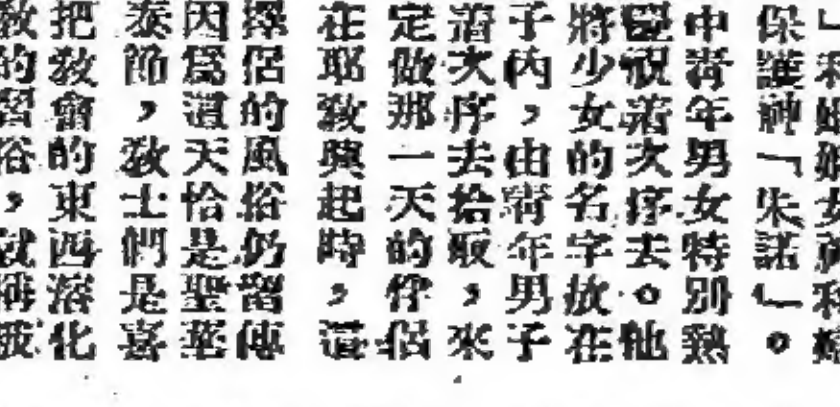 保護神「朱諾」。
中青年男女特別熱
視着次序去。他
將少女的名字放在
子內,由青年男子
着次序去拾取,來
定做那一天的伴侶
在耶敎興起時,這
擇侶的風俗仍留傳
因爲這天恰是聖華
泰節,敎士們是喜
把敎會的東西溶化
敎的習俗,就